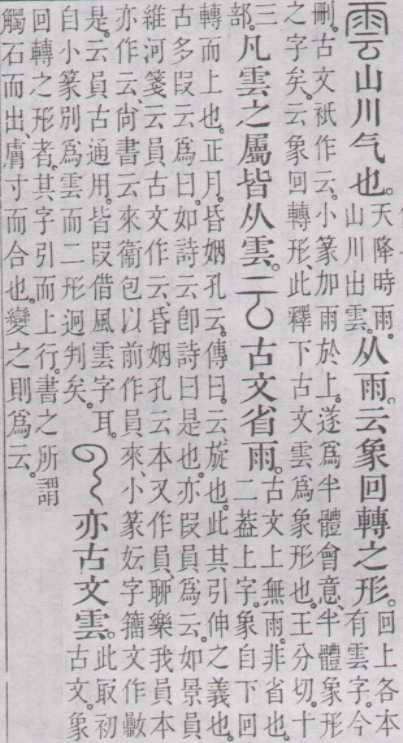 雲山川气也。天降時雨。山川出雲。从雨。云象回轉之形。回上各本有雲字。今
刪。古文祇作云。小篆加雨於上。遂爲半體會意、半體象形
之字矣。云象回轉形、此釋下古文雲爲象形也。王分切。十
三部。凡雲之屬皆从雲。云古文省雨。古文上無雨。非省也。二葢上字。象自下回
轉而上也。正月。昏姻孔云。傳曰。云旋也。此其引伸之義也。
古多叚云爲曰。如詩云卽詩曰是也。亦叚員爲云。如景員
維河箋云員古文作云、昏姻孔云本又作員、聊樂我員本
亦作云、尙書云來衞包以前作員來、小篆妘字籒文作
是。云員古通用。皆叚借風雲字耳。
自小篆別爲雲而二形迥判矣。
亦古文雲。此取初古文。象
回轉之形者、其字引而上行。書之所謂
觸石而出、膚寸而合也。變之則爲云。